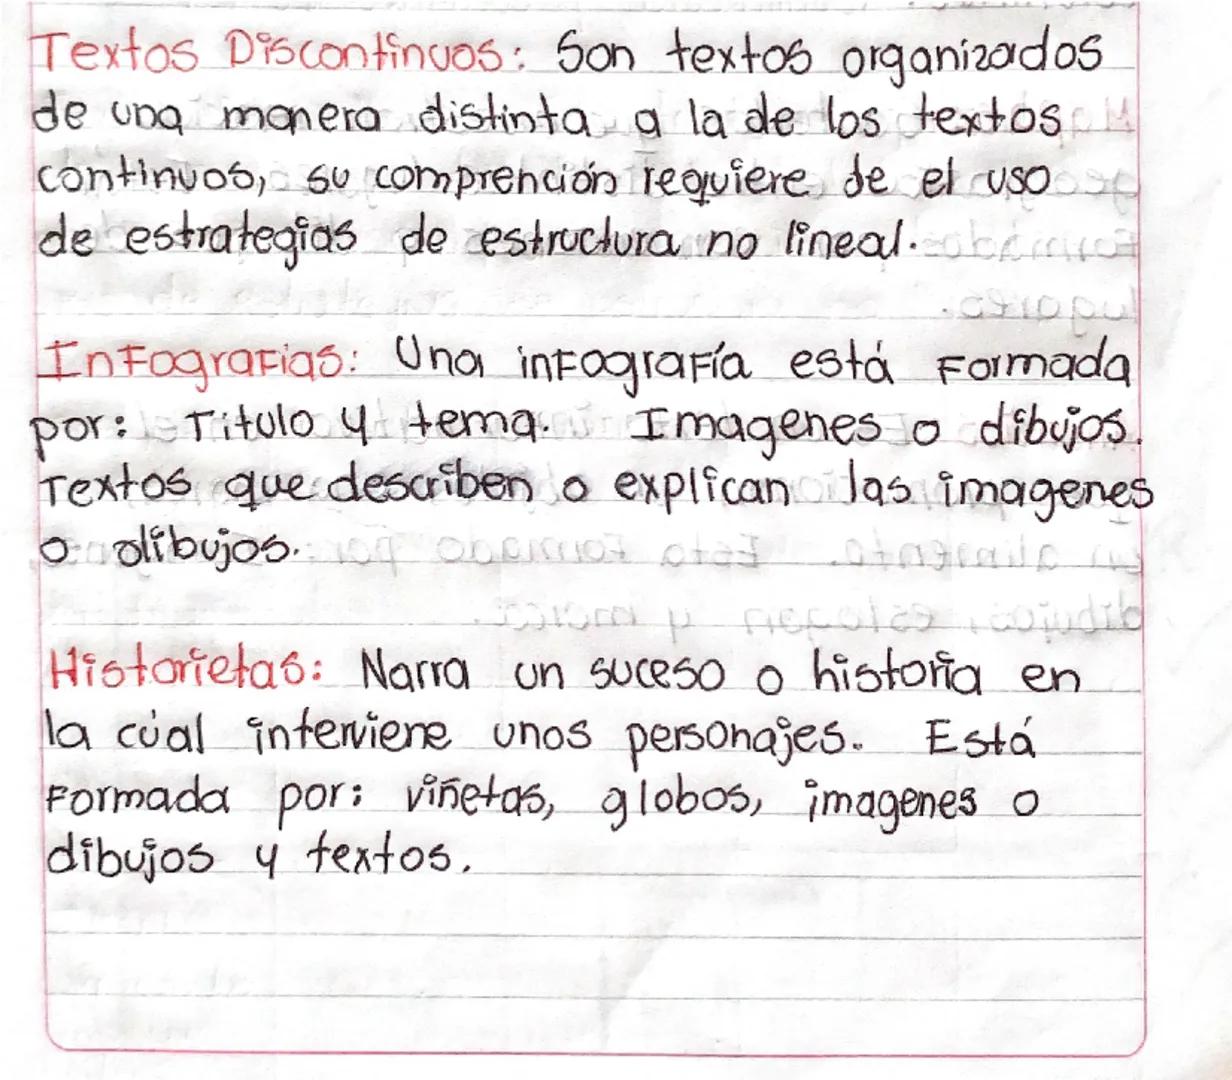 Textos Discontinuos: Son textos organizados
de una manera distinta a la de los textos
continuos, su comprención requiere de el uso
de estrategias de estructura no lineal.
Infografias: Una infografía está formada
por: Titulo y tema. Imagenes o dibujos.
Textos que describen o explican las imagenes
o dibujos.
Historietas: Narra un suceso o historia en
la cúal interviene unos personajes. Está
formada por: viñetas, globos, imagenes o
dibujos y textos.